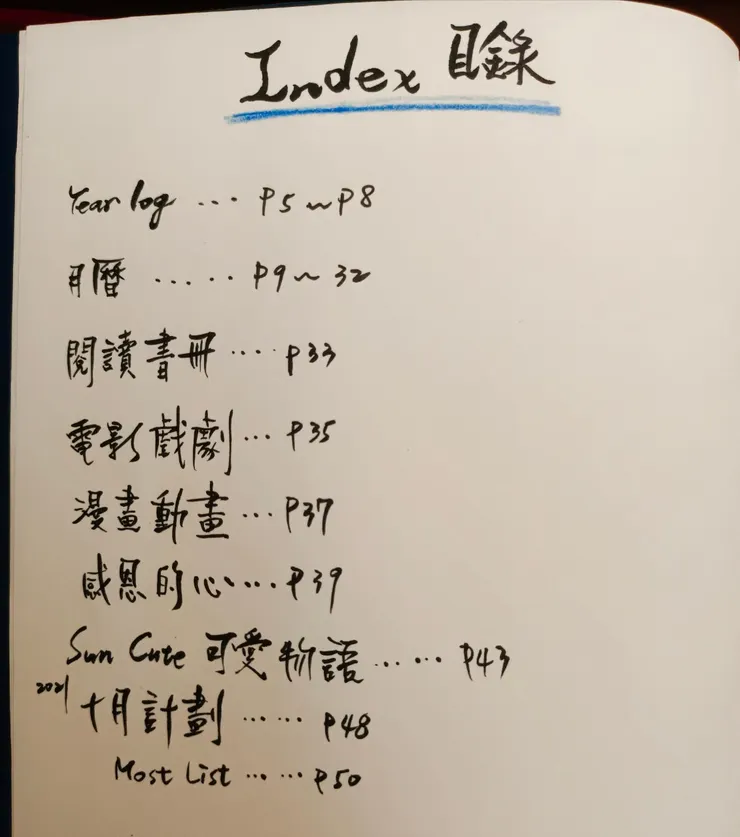 Index 目錄
Year log ... P5~P8
月曆 ..... P9~32
閱讀書冊 .... P33
電影戲劇 ... P35
漫畫動畫 ... P37
感恩的心 ... P39
Sun Cute 可愛物語 ...... P43
2021 十月計劃 ...... P48
Most List ...... P50